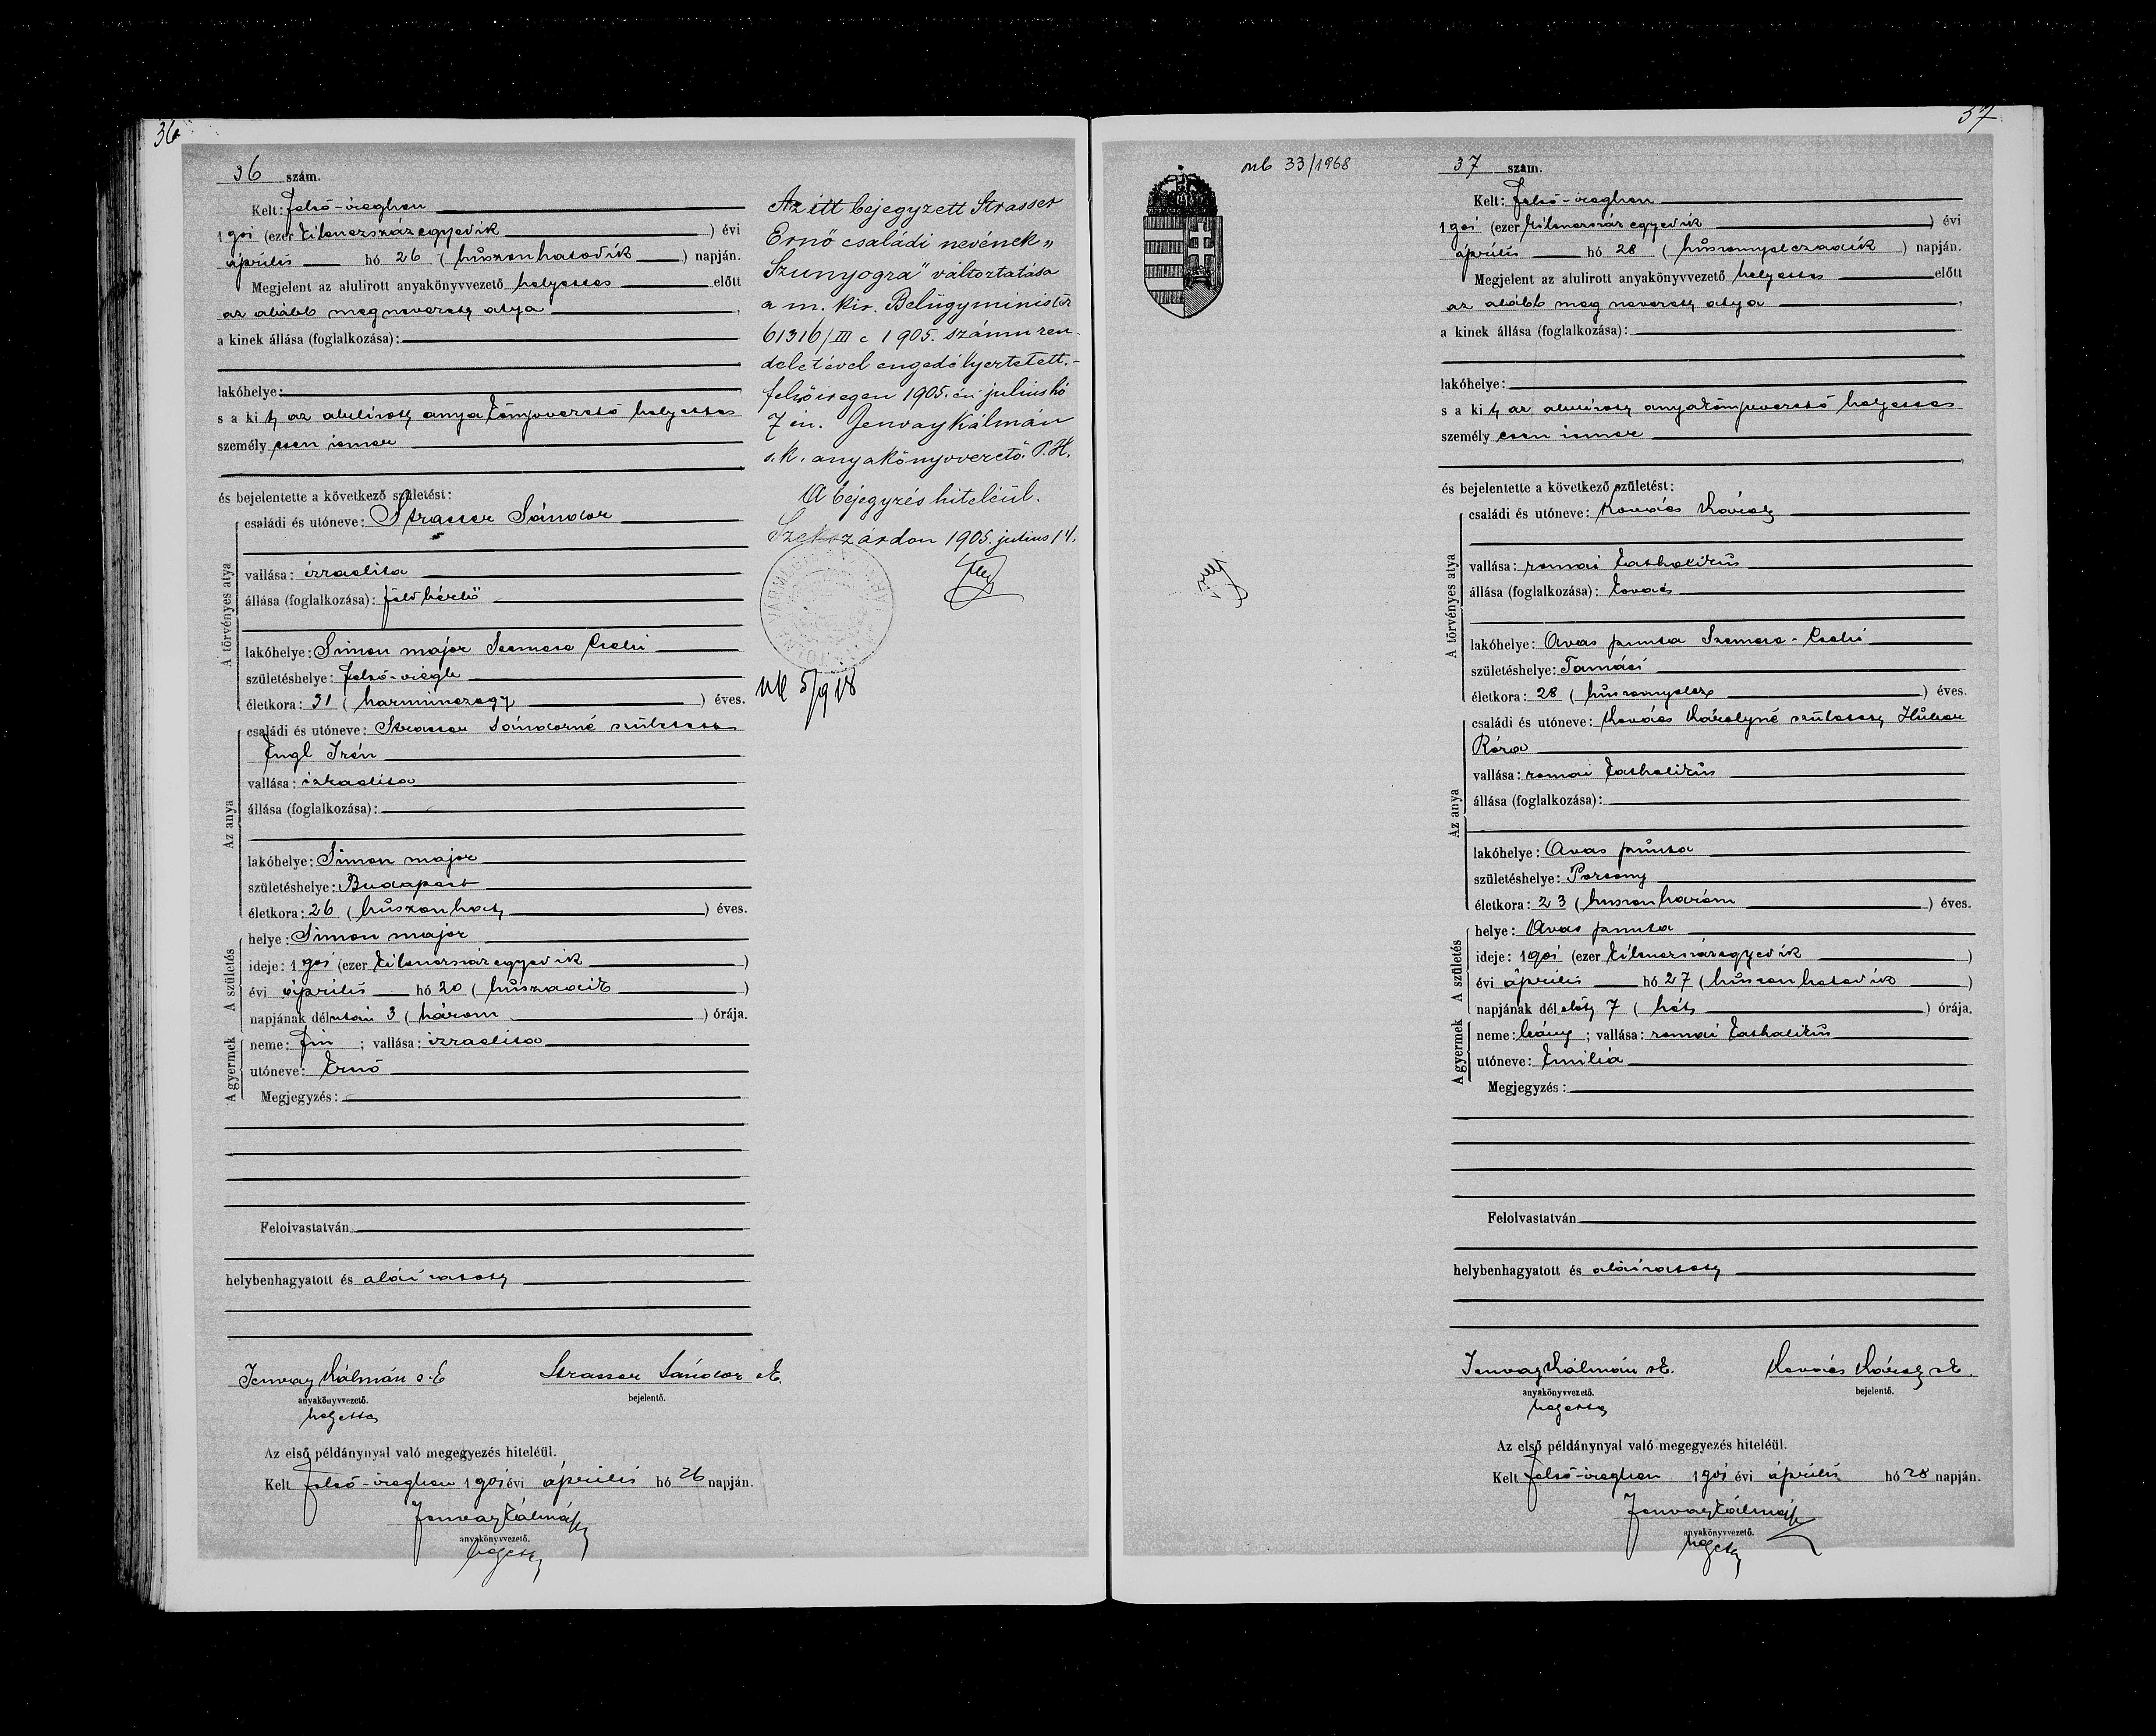 36
36 szám.
Kelt: Felső-iregben
1901 (ezer kilenczszázegyedik) évi
április hó 26 (huszonhatodik) napján.
Megjelent az alulirott anyakönyvvezető helyettes előtt
az alább megnevezett atya,
a kinek állása (foglalkozása):
lakóhelye:
s a kit az alulirott anyakönyvvezető helyettes
személyesen ismer
és bejelentette a következő születést:
A törvényes atya
családi és utóneve: Strasser Sándor
vallása: izraelita
állása (foglalkozása): földbérlő
lakóhelye: Simon major
születéshelye: Felső-iregh
életkora: 31 (harminczegy) éves.
Az anya
családi és utóneve: Strasser Sándorné született
Engl Irén
vallása: izraelita
állása (foglalkozása):
lakóhelye: Simon major
születéshelye: Budapest
életkora: 26 (huszonhat) éves.
A születés
helye: Simon major
ideje: 1901 (ezer kilenczszázegyedik)
évi április hó 20 (huszadik)
napjának délután 3 (három) órája.
A gyermek
neme: fiu; vallása: izraelita
utóneve: Ernő
Megjegyzés:
Felolvastatván
helybenhagyatott és aláiratott
Jenvay Kálmán s.k. Strasser Sándor sk.
anyakönyvvezető. bejelentő.
helyettes
Az első példánynyal való megegyezés hiteléül.
Kelt Felső-iregben 1901 évi április hó 26 napján.
Jenvay Kálmán
anyakönyvvezető.
helyettes
Az itt bejegyzett Strasser
Ernő családi nevének „
Szunyogra" változtatása
a m. kir. Belügyminister
61316/III c 1905. számu ren-
deletével engedélyeztetett.-
felsőiregen 1905. évi julius hó
7 én. Jenvay Kálmán
s.k. anyakönyvvezető. P.H.
A bejegyzés hiteléül.
Szekszárdon 1905. julius 14.
37
nb 33/1968
37 szám.
Kelt: Felső-iregben
1901 (ezer kilenczszázegyedik) évi
április hó 28 (huszonnyolczadik) napján.
Megjelent az alulirott anyakönyvvezető helyettes előtt
az alább megnevezett atya,
a kinek állása (foglalkozása):
lakóhelye:
s a kit az alulirott anyakönyvvezető helyettes
személyesen ismer
és bejelentette a következő születést:
A törvényes atya
családi és utóneve: Kovács Károly
vallása: romai katholikus
állása (foglalkozása): kovács
lakóhelye: Avas puszta
születéshelye: Tamási
életkora: 28 (huszonnyolcz) éves.
Az anya
családi és utóneve: Kovács Károlyné született Huber
Róza
vallása: romai katholikus
állása (foglalkozása):
lakóhelye: Avas puszta
születéshelye:
életkora: 23 (huszonhárom) éves.
A születés
helye: Avas puszta
ideje: 1901 (ezer kilenczszázegyedik)
évi április hó 27 (huszonhatodik)
napjának délelőtt 7 (hét) órája.
A gyermek
neme: leány; vallása: romai katholikus
utóneve: Emilia
Megjegyzés:
Felolvastatván
helybenhagyatott és aláiratott
Jenvay Kálmán sk. Kovács Károly sk.
anyakönyvvezető. bejelentő.
helyettes
Az első példánynyal való megegyezés hiteléül.
Kelt Felső-iregben 1901 évi április hó 28 napján.
Jenvay Kálmán
anyakönyvvezető.
helyettes